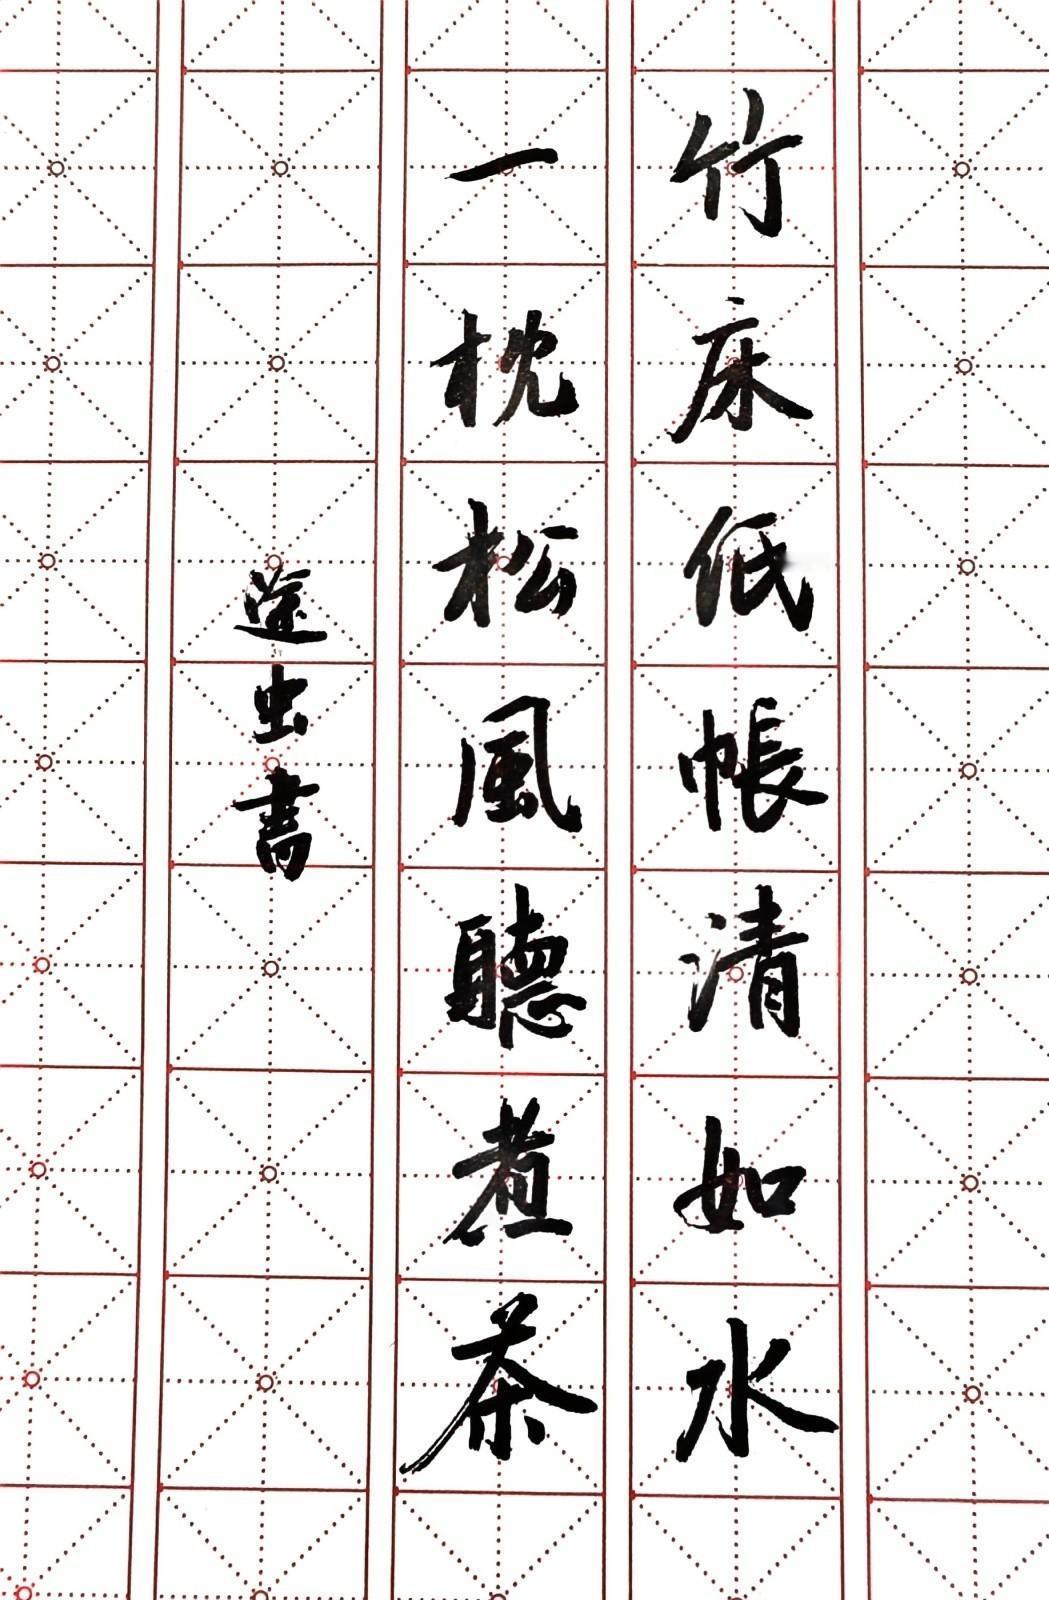 竹床低帳清如水
一枕松風聽煮茶
途虫書